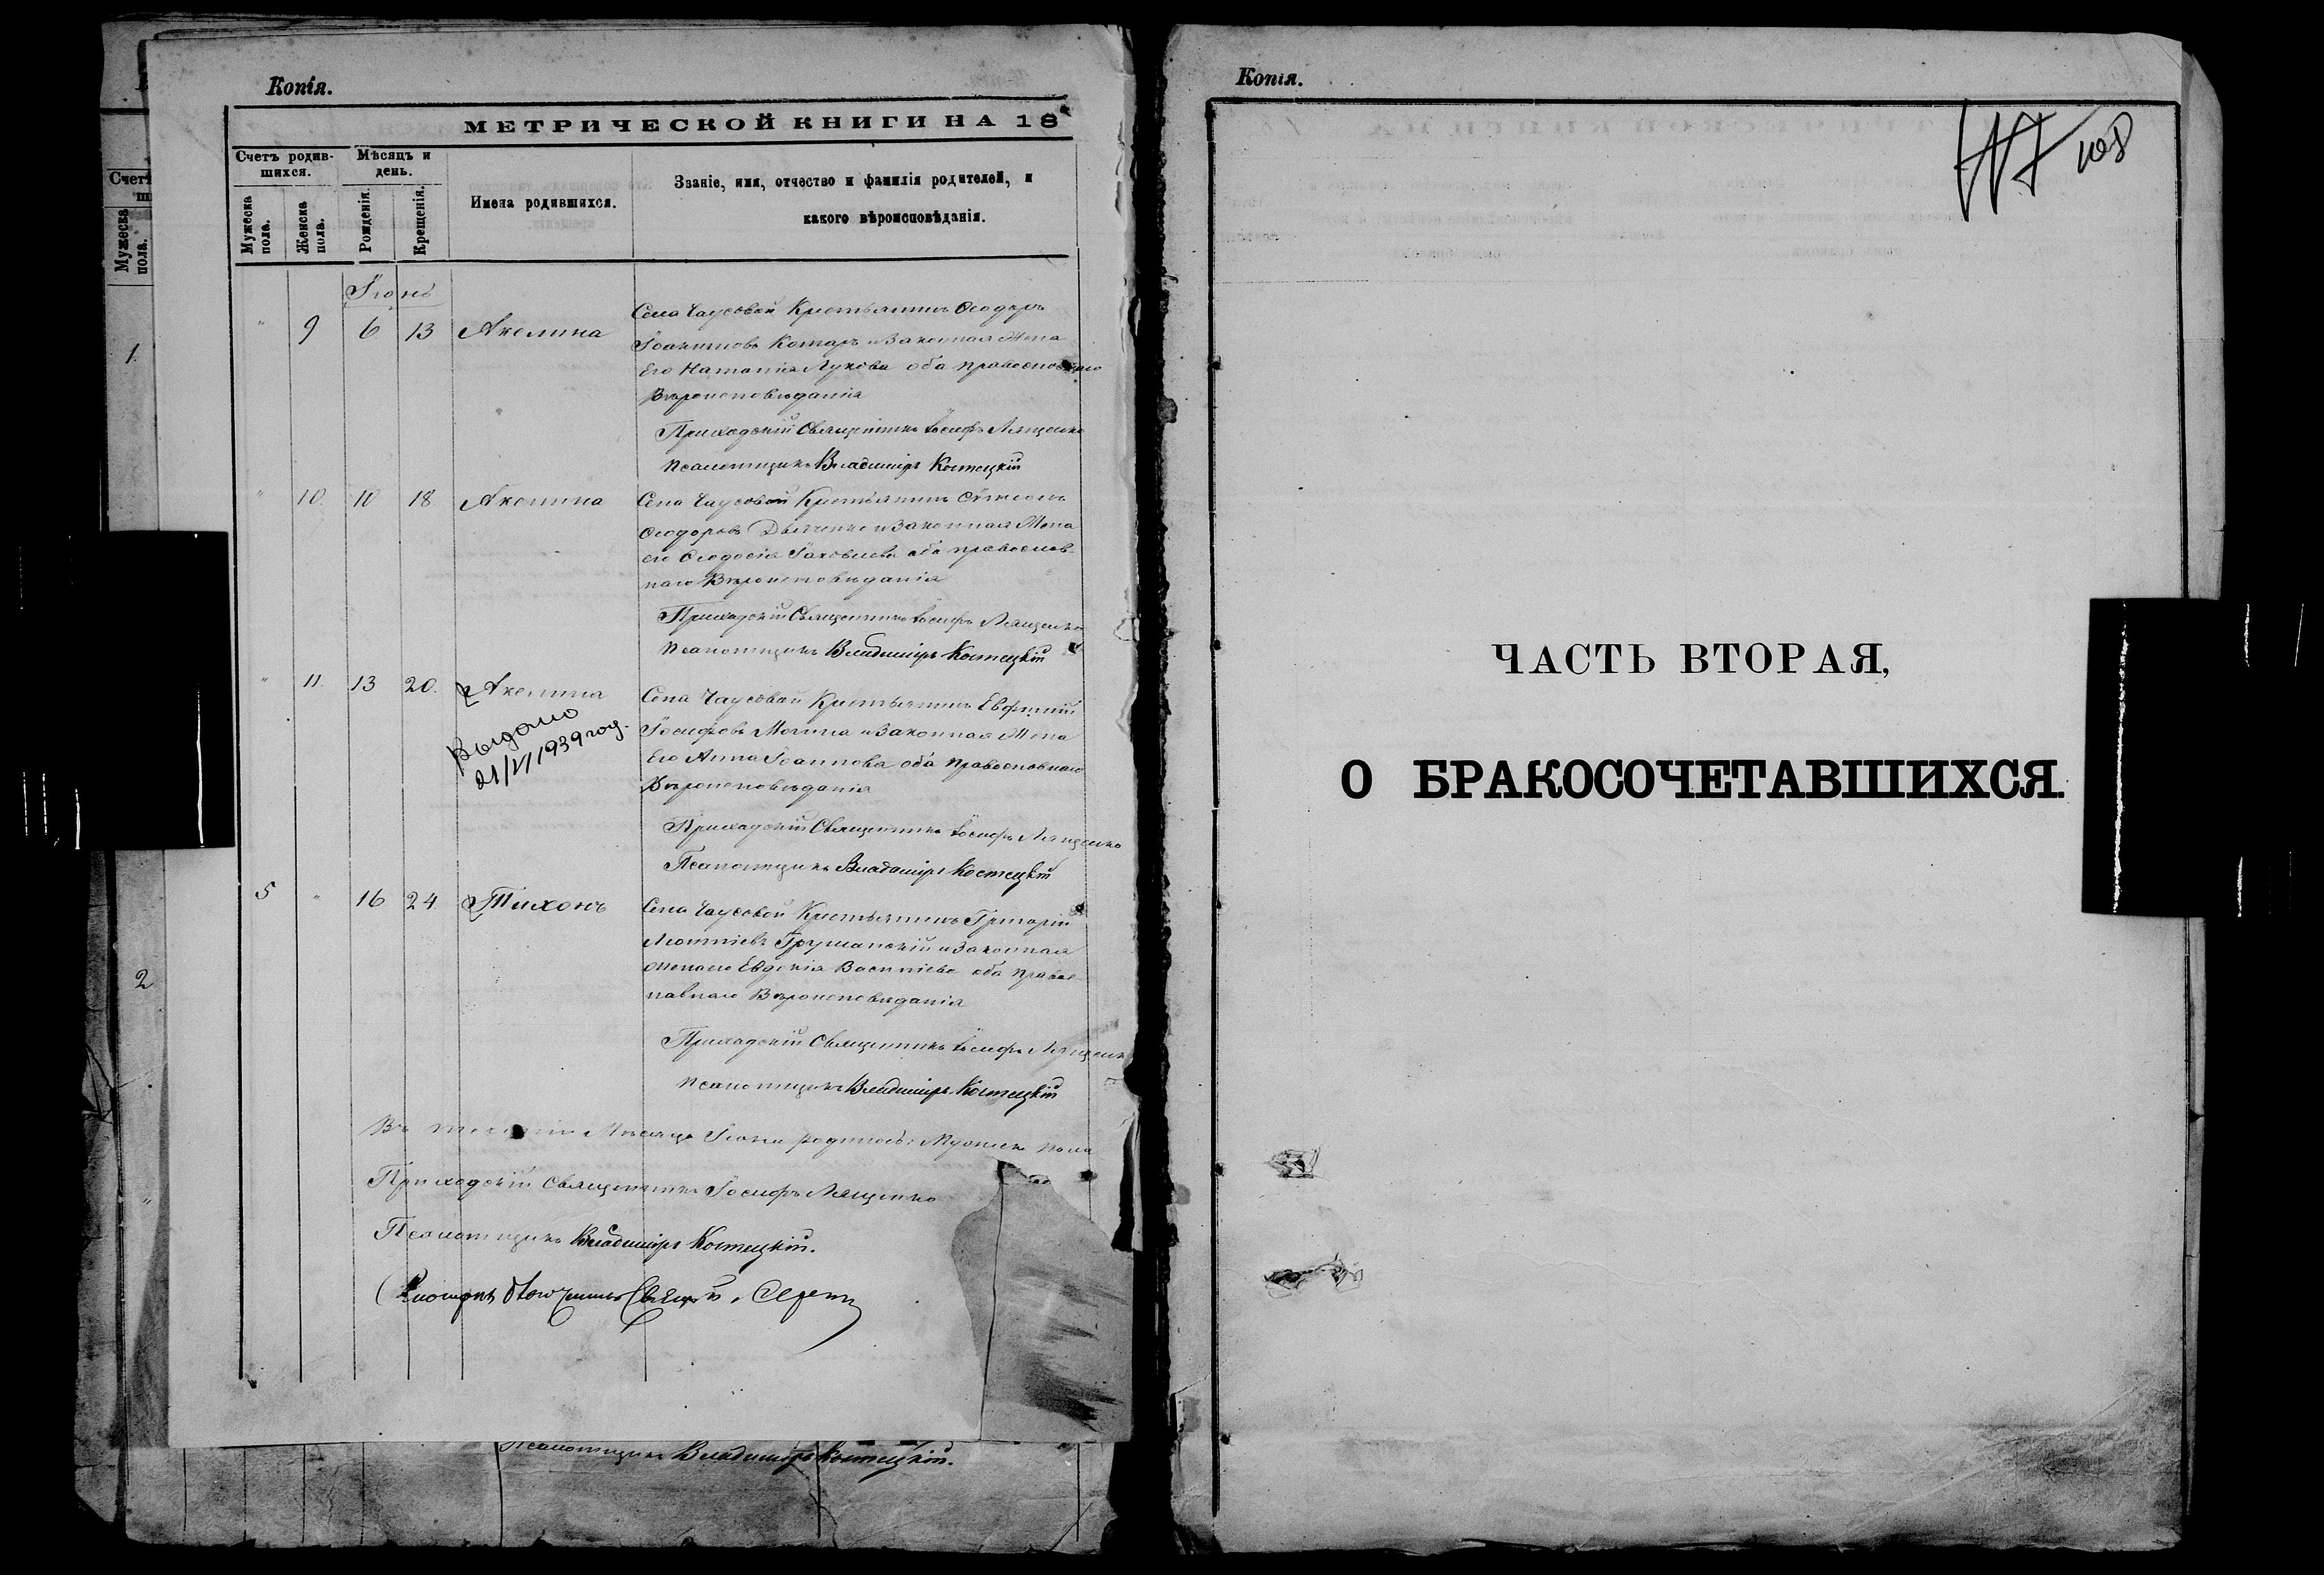 Копія.
МЕТРИЧЕСКОЙ КНИГИ НА 18
Счетъ родив-
шихся.
Мѣсяцъ и
день.
Мужеска
пола.
Женска
пола.
Рожденія.
Крещенія.
Имена родившихся.
Званіе, имя, отчество и фамилія родителей, и
какого вѣроисповѣданія.
Счетъ
Мужеска
пола.
1.
2
Іюнь
" 9 6 13 Акелина
Села Чаусовой Крестьянинъ Ѳеодоръ
Іоакимовъ Комаръ и Законная Жена
Его Наталія Лукова оба православнаго
Вѣроисповѣданія
Приходскій Священникъ Іосифъ Лященко
Псаломщикъ Владиміръ Костецкій
" 10. 10 18. Акелина
Села Чаусовой Крестьянинъ
Ѳеодоровъ Дяченко и Законная Жена
его Ѳеодосія Іаковлева оба православ-
наго Вѣроисповѣданія
Приходскій Священникъ Іосифъ Лященко
Псаломщикъ Владиміръ Костецкій
" 11. 13 20. Акелина
Выдано
21/VI 1939 год.
Села Чаусовой Крестьянинъ Евфимій
Іосифовъ и Законная Жена
Его Анна Іоаннова оба православнаго
Вѣроисповѣданія
Приходскій Священникъ Іосифъ Лященко
Псаломщикъ Владиміръ Костецкій
5 " 16 24. Тихонъ
Села Чаусовой Крестьянинъ Григорій
Леонтіевъ и Законная
Жена его Евдокія Василіева оба право-
славнаго Вѣроисповѣданія
Приходскій Священникъ Іосифъ Лященко
Псаломщикъ Владиміръ Костецкій
Въ теченіи Мѣсяца Іюня родилось: Мужеска пола
Приходскій Священникъ Іосифъ Лященко
Псаломщикъ Владиміръ Костецкій.
Псаломщикъ Владиміръ Костецкій.
Копія.
108
ЧАСТЬ ВТОРАЯ,
О БРАКОСОЧЕТАВШИХСЯ.